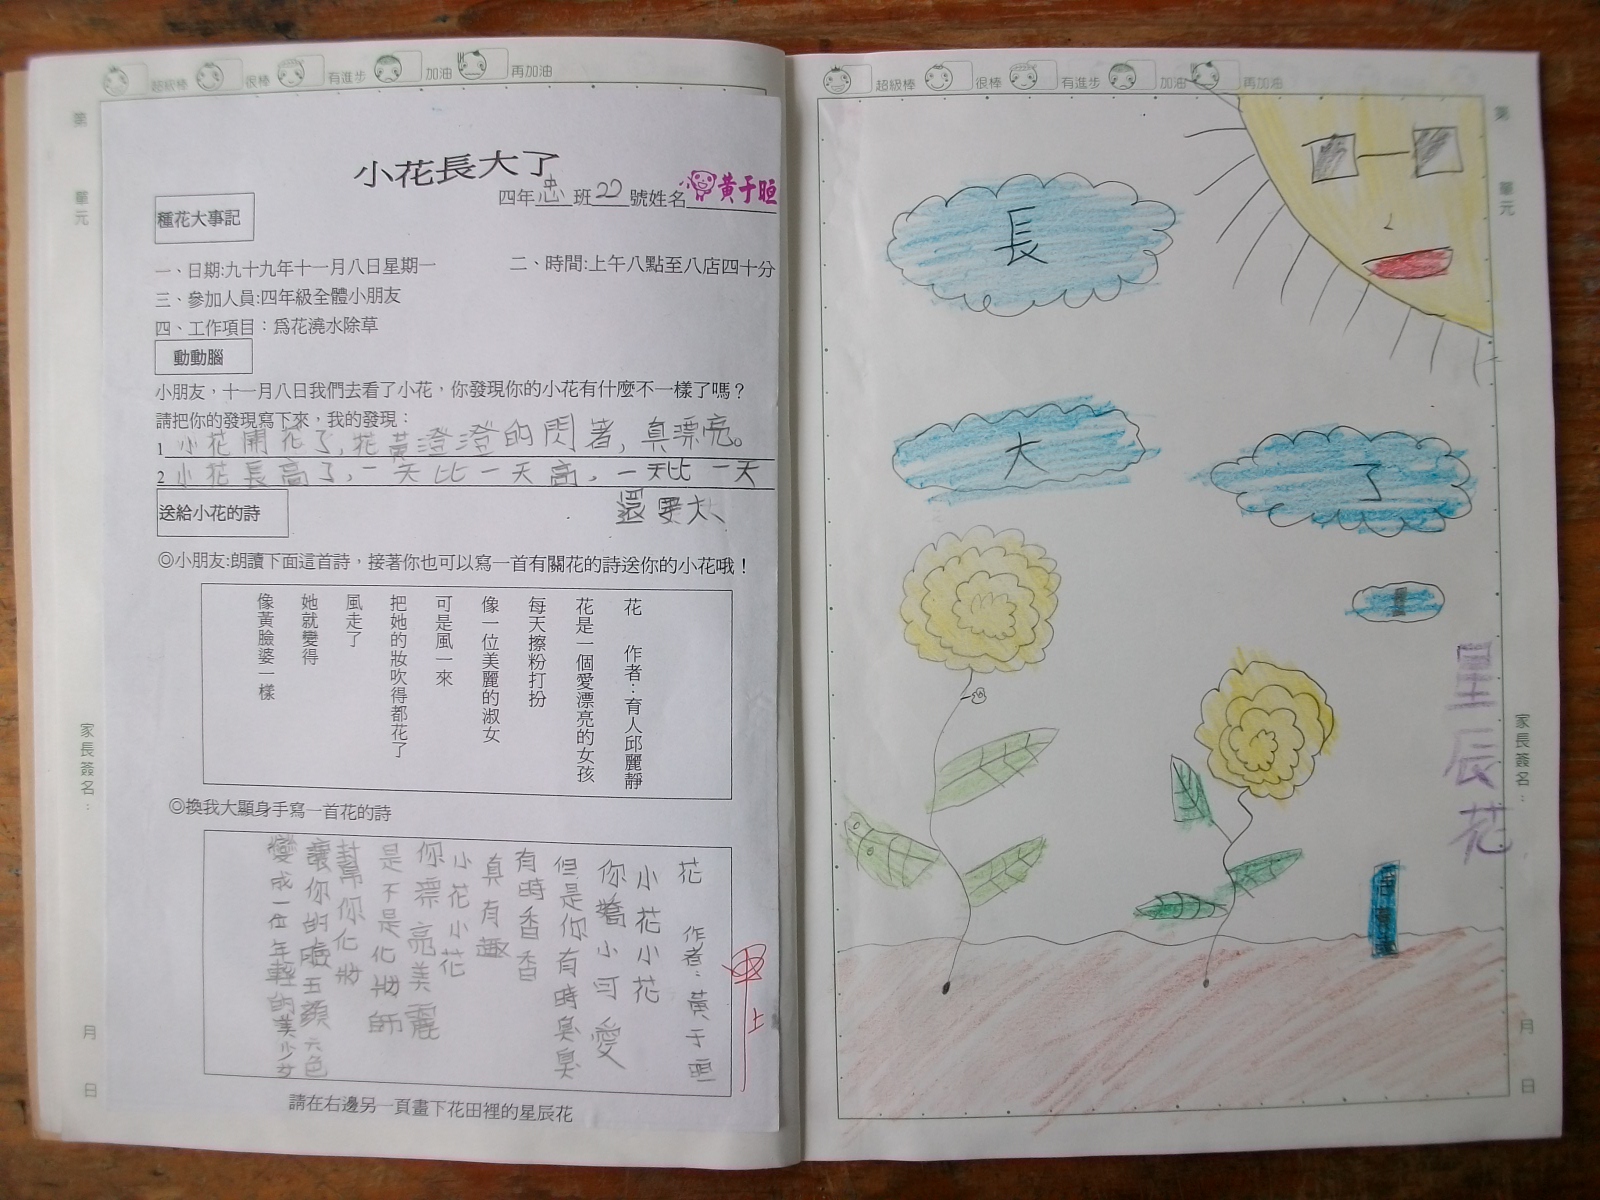 超級棒 很棒 有進步 加油 再加油
第
單元
家長簽名：
月
日
小花長大了
四年忠班22號姓名黃于晅
種花大事記
一、日期:九十九年十一月八日星期一 二、時間:上午八點至八店四十分
三、參加人員:四年級全體小朋友
四、工作項目：為花澆水除草
動動腦
小朋友，十一月八日我們去看了小花，你發現你的小花有什麼不一樣了嗎？
請把你的發現寫下來，我的發現：
1 小花開花了,花黃澄澄的閃著,真漂亮。
2 小花長高了,一天比一天高,一天比一天
還要大、
送給小花的詩
◎小朋友:朗讀下面這首詩，接著你也可以寫一首有關花的詩送你的小花哦！
花 作者：育人邱麗靜
花是一個愛漂亮的女孩
每天擦粉打扮
像一位美麗的淑女
可是風一來
把她的妝吹得都花了
風走了
她就變得
像黃臉婆一樣
◎換我大顯身手寫一首花的詩
花 作者：黃于晅
小花小花
你嬌小可愛
但是你有時臭臭
有時香香
真有趣
小花小花
你漂亮美麗
是不是化妝師
幫你化妝
讓你的臉五顏六色
變成一位年輕的美少女
甲上
請在右邊另一頁畫下花田裡的星辰花
超級棒 很棒 有進步 加油 再加油
第
單元
長
大
了
星辰花
家長簽名：
月
日